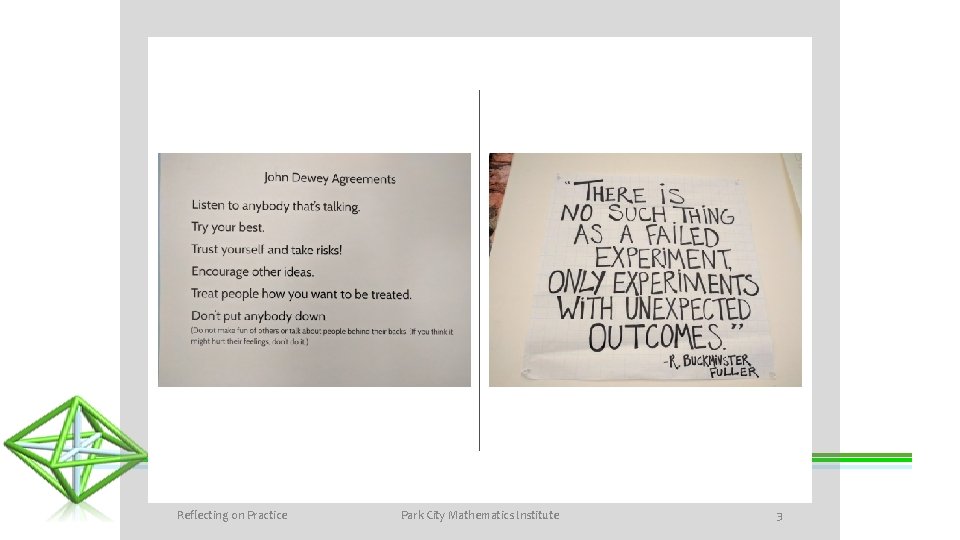 John Dewey Agreements
Listen to anybody that's talking.
Try your best.
Trust yourself and take risks!
Encourage other ideas.
Treat people how you want to be treated.
Don't put anybody down
(Do not make fun of others or talk about people behind their backs. If you think it
might hurt their feelings, don't do it.)
"THERE IS
NO SUCH THING
AS A FAILED
EXPERIMENT,
ONLY EXPERIMENTS
WITH UNEXPECTED
OUTCOMES."
-R. BUCKMINSTER
FULLER
Reflecting on Practice
Park City Mathematics Institute
3